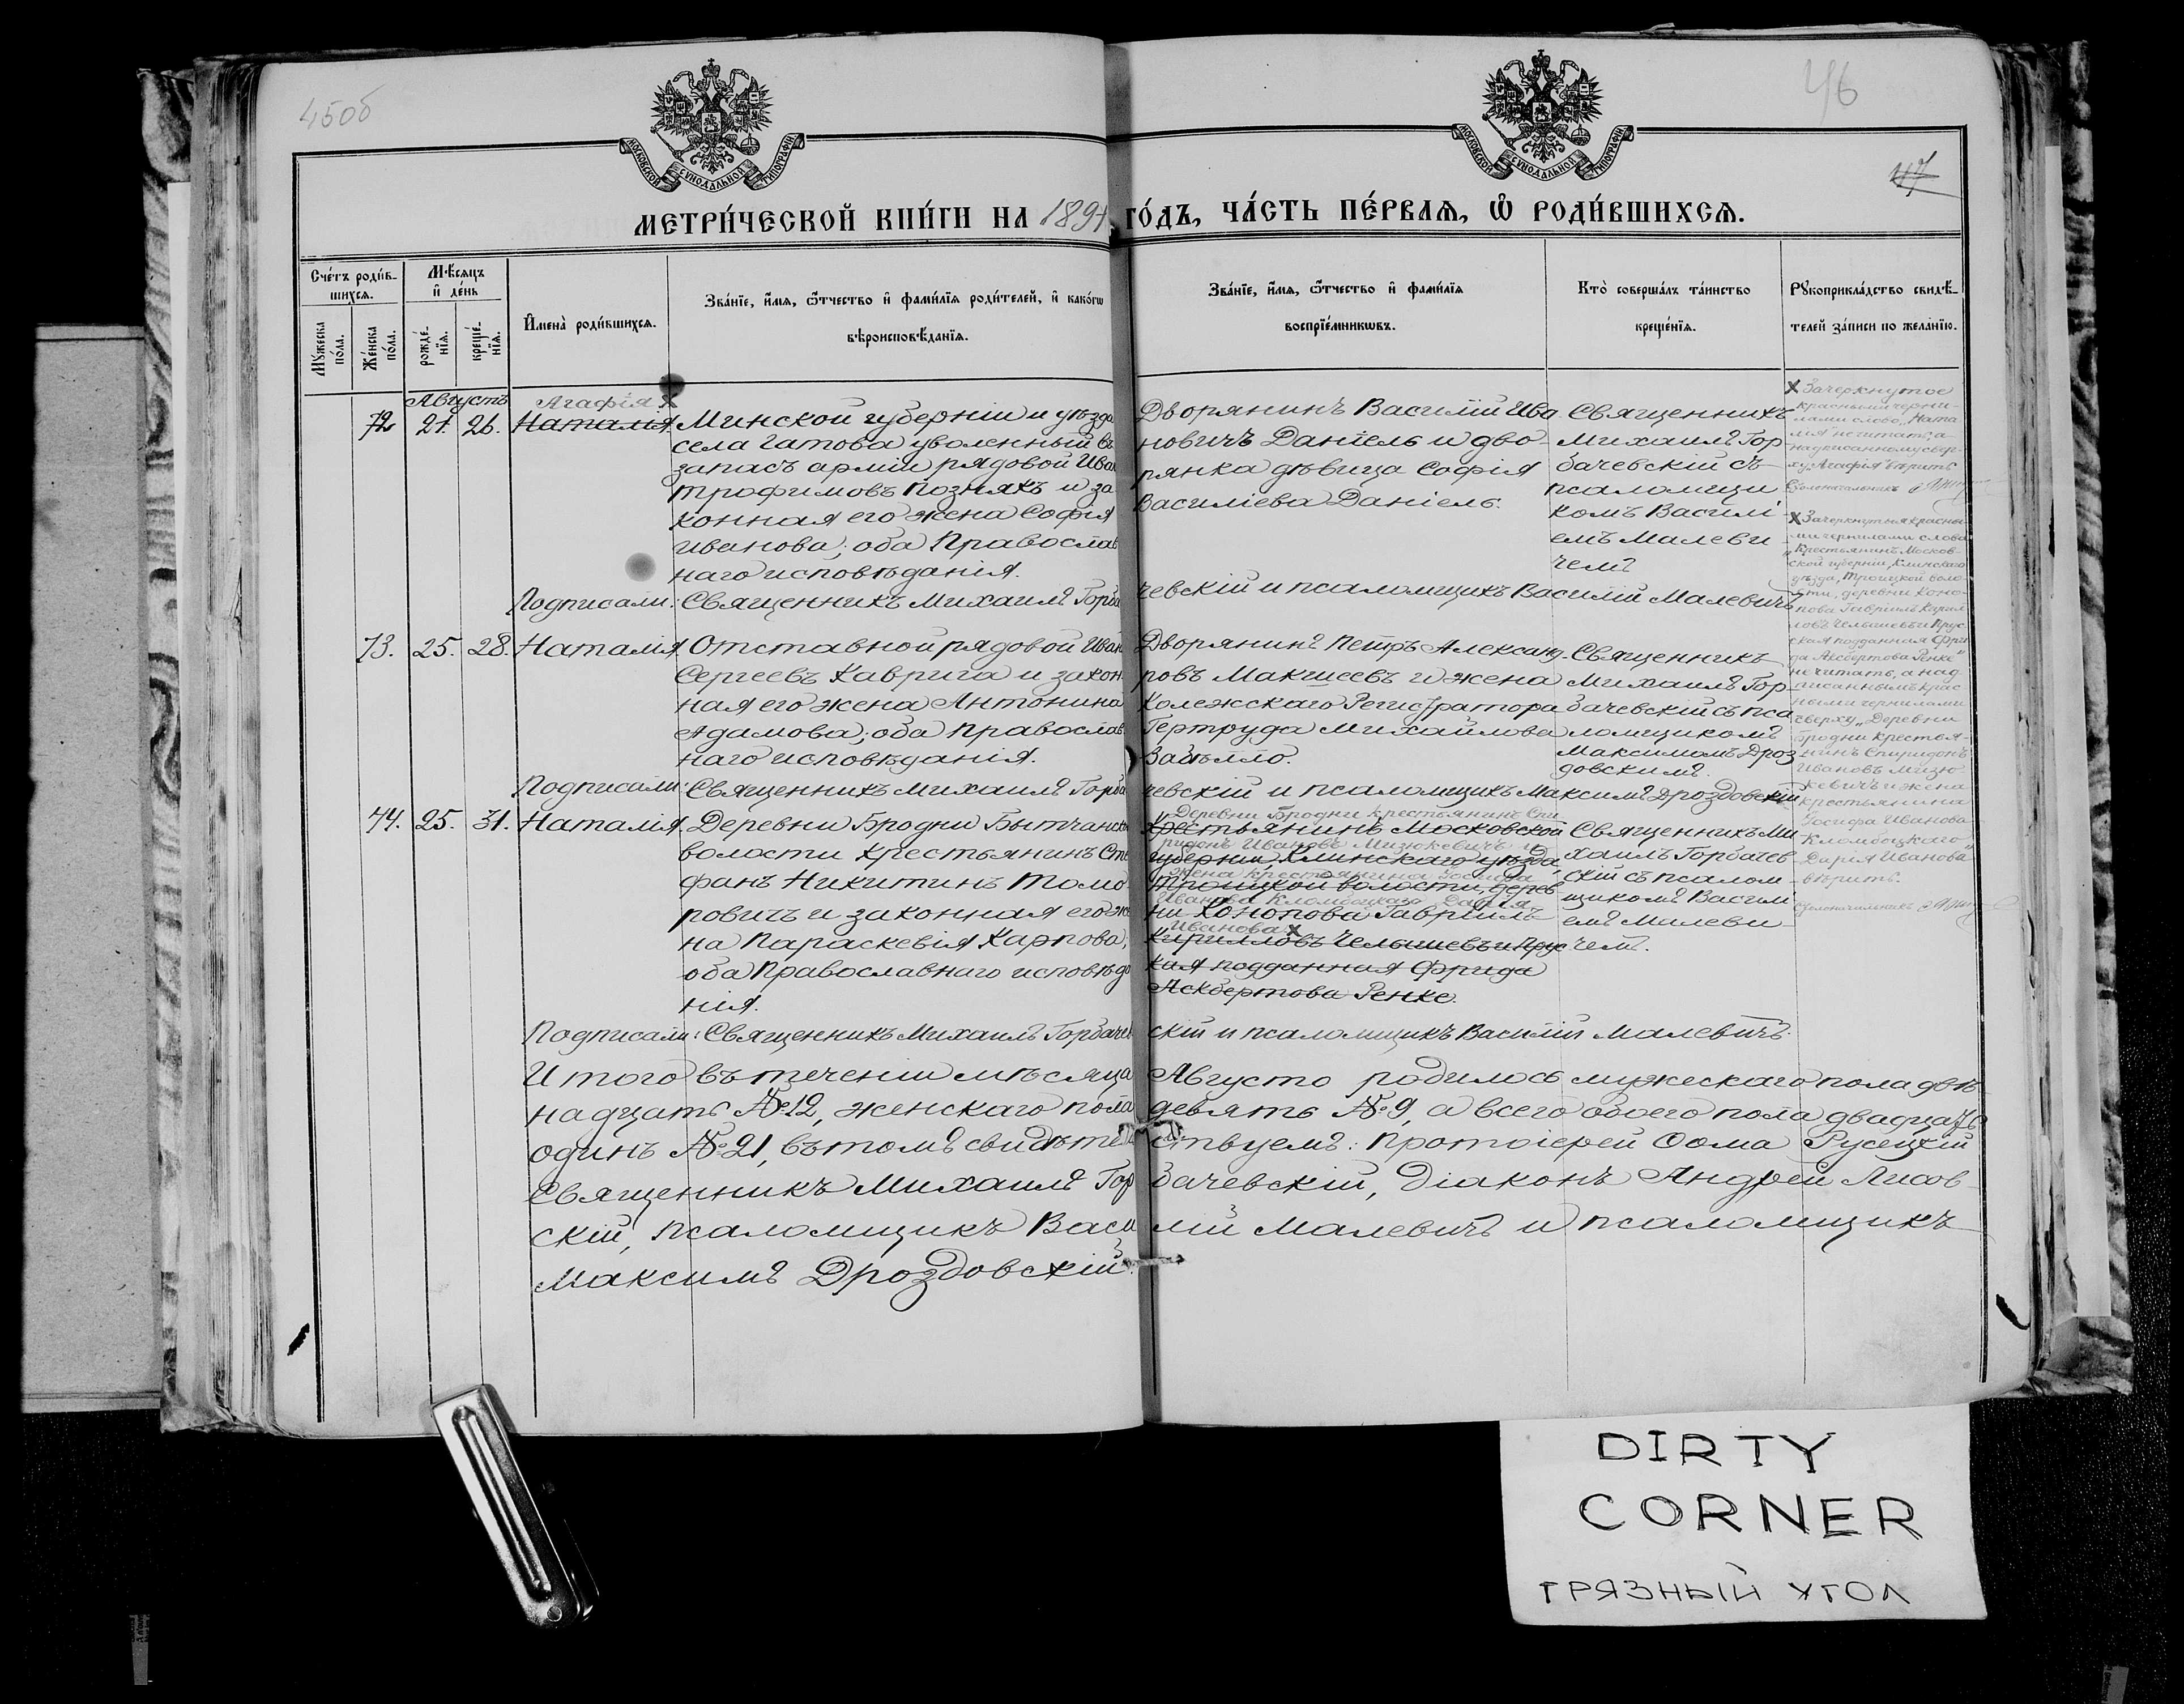 45об
46
47
МОСКОВСКОЙ СѴНОДАЛЬНОЙ ТИПОГРАФІИ
МОСКОВСКОЙ СѴНОДАЛЬНОЙ ТИПОГРАФІИ
МЕТРИ́ЧЕСКОЙ КНИ́ГИ НА 1891 ГО́ДЪ, ЧА́СТЬ ПЕ́РВАѦ, Ѡ҆ РОДИ́ВШИХСѦ.
Сче́тъ роди́в-
шихсѧ.
Мꙋ́жеска по́ла.
Же́нска по́ла.
Мѣ́сѧцъ
и҆ де́нь
рожде́-
нїѧ.
креще́-
нїѧ.
И҆мена̀ роди́вшихсѧ.
Зва́нїе, и҆́мѧ, ѻ҆́тчество и҆ фами́лїѧ роди́телей, и҆ како́гѡ
вѣроисповѣ́данїѧ.
Зва́нїе, и҆́мѧ, ѻ҆́тчество и҆ фами́лїѧ
воспрїе́мникѡвъ.
Кто̀ соверша́лъ та́инство
креще́нїѧ.
Рꙋкоприкла́дство свидѣ́-
телей за́писи по жела́нїю.
Августъ
72
21. 26.
Агафія х
Наталія
Минской губерніи и уѣзда
села Гатова уволенный въ
запасъ арміи рядовой Иван
Трофимовъ Познякъ и за
конная его жена Софія
Иванова; оба Православ
наго исповѣданія.
Дворянинъ Василій Ива
новичъ Даніель и дво-
рянка дѣвица Софія
Василіева Даніель.
Священникъ
Михаилъ Гор-
бачевскій съ
псаломщи-
комъ Василі-
емъ Малеви-
чемъ
х Зачеркнутое
красными черни-
лами слово „Ната
лія" не читать, а
надписанному свер-
ху „Агафія" вѣрить
Подписали: Священникъ Михаилъ Горба
чевскій и псаломщикъ Василій Малевичъ
73. 25. 28. Наталія.
Отставной рядовой Иван
Сергеевъ Каврига и закон
ная его жена Антонина
Адамова; оба Православ
наго исповѣданія.
Дворянинъ Петръ Александ-
ровъ Макшеевъ и жена
Колежскаго Регистратора
Гертруда Михайлова
Священникъ
Михаилъ Гор-
бачевскій съ пса
ломщикомъ
Максимомъ Дроз
довскимъ.
Подписали: Священникъ Михаилъ Горба
чевскій и псаломщикъ Максимъ Дроздовскій
х Зачеркнутыя красны-
ми чернилами слова
„Крестьянинъ Москов-
ской губерніи, Клинскаго
уѣзда, Троицкой воло-
сти, деревни Коно-
пова Гавріилъ Кирил
ловъ Челышевъ и Прус
ская подданная Фри
да Аскбертова Ренке"
не читать, а над
писаннымъ крас
ными чернилами
сверху „Деревни
Бродни крестья-
нинъ Спиридонъ
Ивановъ Мизю-
кевичъ и жена
крестьянина
Іосифа Иванова
Кломбоцкаго
Дарія Иванова"
вѣрить.
74. 25. 31. Наталія.
Деревни Бродни Бытчанской
волости крестьянинъ Сте
фанъ Никитинъ Томо
ровичъ и законная его же
на Параскевія Карпова;
оба Православнаго исповѣда
нія.
Деревни Бродни крестьянинъ Спи
Крестьянинъ Московской
ридонъ Ивановъ Мизюкевичъ и
губерніи, Клинскаго уѣзда,
жена крестьянина Іосифа
Троицкой волости, дерев
Иванова Кломбоцкаго Дарія
ни Конопова Гавріилъ
Иванова х
Кирилловъ Челышевъ и Прус
кая подданная Фрида
Аскбертова Ренке.
Священникъ Ми
хаилъ Горбачев
скій съ псалом-
щикомъ Васили
емъ Малеви-
чемъ.
Подписали: Священникъ Михаилъ Горбачев
скій и псаломщикъ Василій Малевичъ.
Итого въ теченіи мѣсяца Августо родилось мужескаго пола двѣ
надцать №12, женскаго пола девять №9, а всего обоего пола двадцать
одинъ №21, въ томъ свидѣтельствуемъ: Протоіерей Ѳома Русецкій
Священникъ Михаилъ Горбачевскій, Діаконъ Андрей Лисов-
скій, псаломщикъ Василій Малевичъ и псаломщикъ
Максимъ Дроздовскій.
DIRTY
CORNER
ГРЯЗНЫЙ УГОЛ